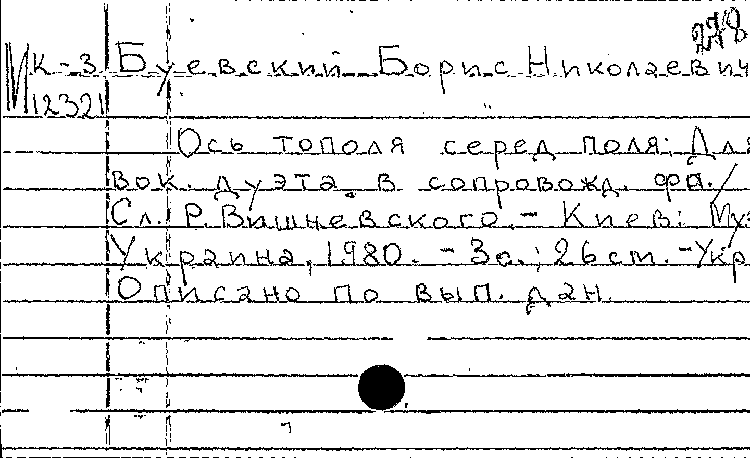 278
К-3 Буевский Борис Николаевич
12321
Ось тополя серед поля: Для
вок. дуэта в сопровожд. фп./
Сл. Р. Вишневского. - Киев: Муз
Украина, 1980. - 3с.; 26 см. - Укр
Описано по вып. дан.